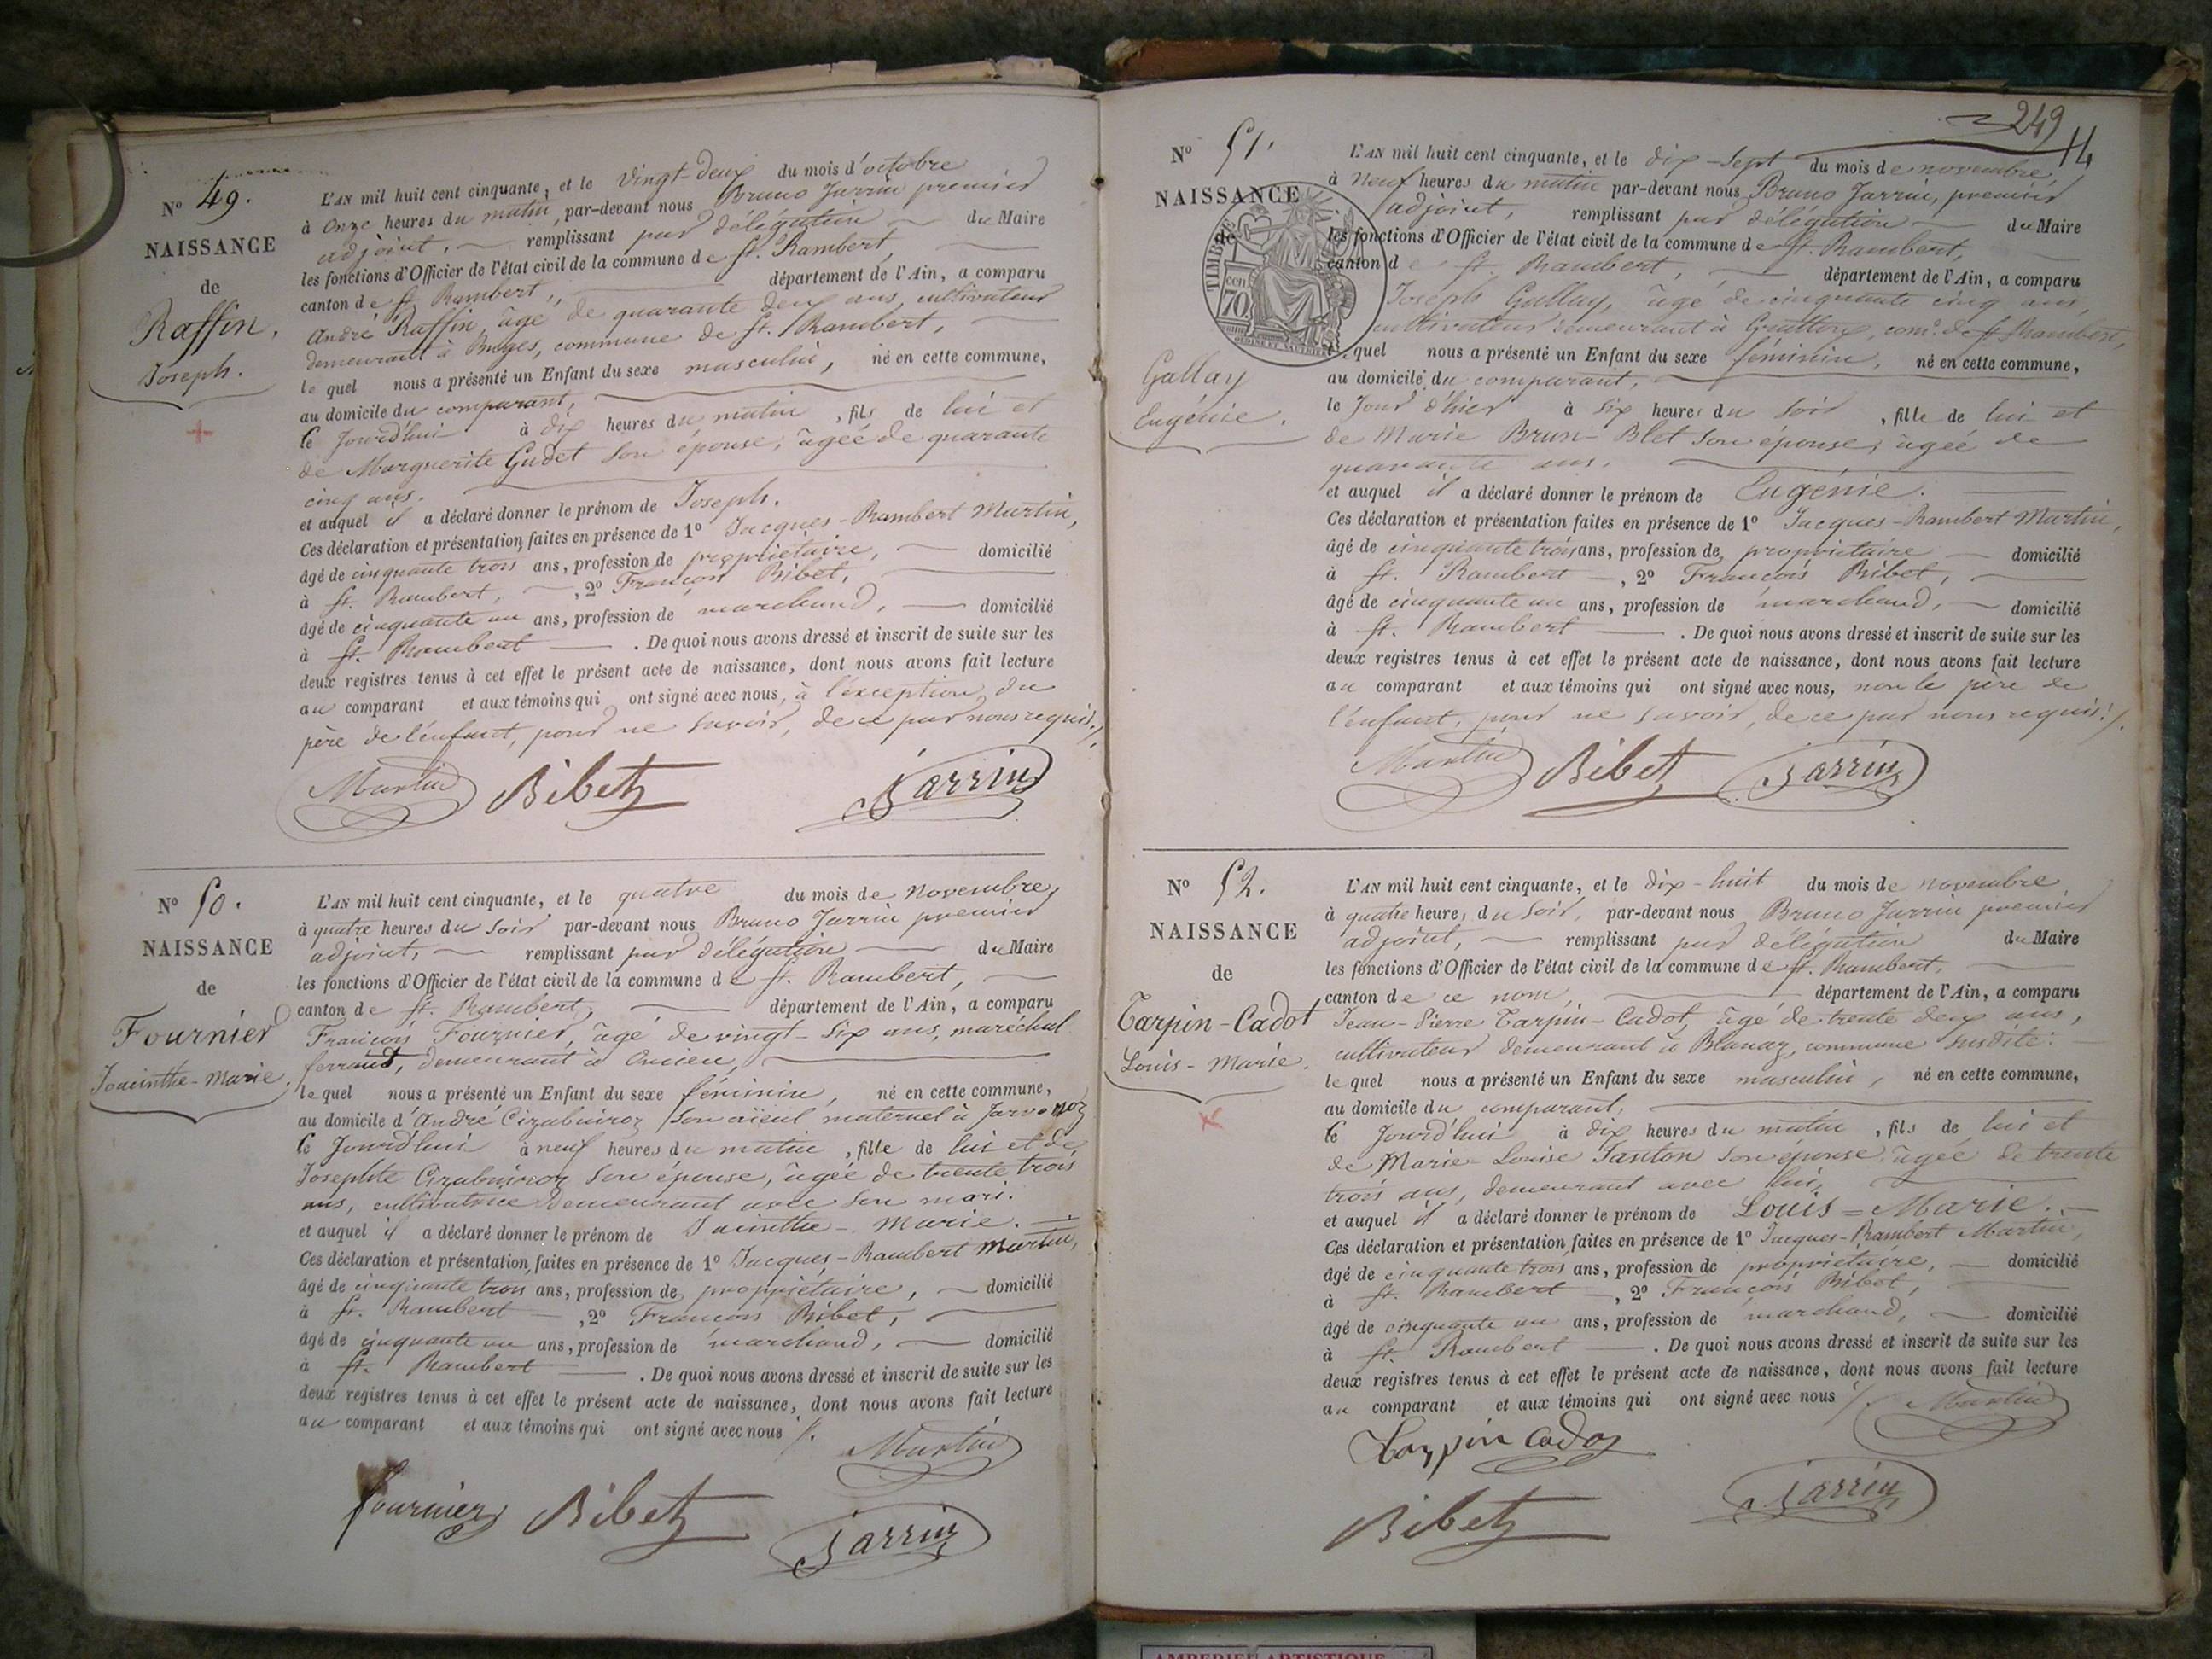 N° 49.
NAISSANCE
de
Raffin.
Joseph.
L'AN mil huit cent cinquante, et le vingt-deux du mois d'octobre
à onze heures du matin, par-devant nous Bruno Jarrin premier
adjoint, remplissant par délégation du Maire
les fonctions d'Officier de l'état civil de la commune de St. Rambert,
canton de St. Rambert, département de l'Ain, a comparu
André Raffin, âgé de quarante deux ans, cultivateur
demeurant à Buges, commune de St. Rambert,
lequel nous a présenté un Enfant du sexe masculin, né en cette commune,
au domicile du comparant,
le jourd'hui à dix heures du matin, fils de lui et
de Marguerite Gudet son épouse, âgée de quarante
cinq ans.
et auquel il a déclaré donner le prénom de Joseph.
Ces déclaration et présentation faites en présence de 1° Jacques-Rambert Martin,
âgé de cinquante trois ans, profession de propriétaire, domicilié
à St. Rambert, 2° François Bibet,
âgé de cinquante un ans, profession de marchand, domicilié
à St. Rambert. De quoi nous avons dressé et inscrit de suite sur les
deux registres tenus à cet effet le présent acte de naissance, dont nous avons fait lecture
au comparant et aux témoins qui ont signé avec nous, à l'exception du
père de l'enfant, pour ne savoir, de ce par nous requis./.
Martin Bibet Jarrin
N° 50.
NAISSANCE
de
Fournier
Joacinthe-Marie.
L'AN mil huit cent cinquante, et le quatre du mois de novembre,
à quatre heures du soir par-devant nous Bruno Jarrin premier
adjoint, remplissant par délégation du Maire
les fonctions d'Officier de l'état civil de la commune de St. Rambert,
canton de St. Rambert, département de l'Ain, a comparu
François Fournier, âgé de vingt-six ans, maréchal
ferrant, demeurant à Oncieu,
lequel nous a présenté un Enfant du sexe féminin, né en cette commune,
au domicile d'André Cizabuiroz son aïeul maternel à Javornoz
le jourd'hui à neuf heures du matin, fille de lui et de
Josephte Cizabuiroz son épouse, âgée de trente trois
ans, cultivatrice demeurant avec son mari.
et auquel il a déclaré donner le prénom de Jacinthe-Marie.
Ces déclaration et présentation faites en présence de 1° Jacques-Rambert Martin,
âgé de cinquante trois ans, profession de propriétaire, domicilié
à St. Rambert, 2° François Bibet,
âgé de cinquante un ans, profession de marchand, domicilié
à St. Rambert. De quoi nous avons dressé et inscrit de suite sur les
deux registres tenus à cet effet le présent acte de naissance, dont nous avons fait lecture
au comparant et aux témoins qui ont signé avec nous ./.
Martin
fournier Bibet Jarrin
249
N° 51.
NAISSANCE
de
TIMBRE
70 cen
Gallay
Eugénie.
L'AN mil huit cent cinquante, et le dix-sept du mois de novembre,
à neuf heures du matin par-devant nous Bruno Jarrin, premier
adjoint, remplissant par délégation du Maire
les fonctions d'Officier de l'état civil de la commune de St. Rambert,
canton de St. Rambert, département de l'Ain, a comparu
Joseph Gallay, âgé de cinquante cinq ans,
cultivateur demeurant à Grattoux, com.e de St. Rambert,
lequel nous a présenté un Enfant du sexe féminin, né en cette commune,
au domicile du comparant,
le jour d'hier à six heures du soir, fille de lui et
de Marie Brun-Blet son épouse, âgée de
quarante ans.
et auquel il a déclaré donner le prénom de Eugénie.
Ces déclaration et présentation faites en présence de 1° Jacques-Rambert Martin,
âgé de cinquante trois ans, profession de propriétaire domicilié
à St. Rambert, 2° François Bibet,
âgé de cinquante un ans, profession de marchand, domicilié
à St. Rambert. De quoi nous avons dressé et inscrit de suite sur les
deux registres tenus à cet effet le présent acte de naissance, dont nous avons fait lecture
au comparant et aux témoins qui ont signé avec nous, non le père de
l'enfant, pour ne savoir, de ce par nous requis./.
Martin Bibet Jarrin
N° 52.
NAISSANCE
de
Tarpin-Cadot
Louis-Marie.
L'AN mil huit cent cinquante, et le dix-huit du mois de novembre
à quatre heures du soir, par-devant nous Bruno Jarrin premier
adjoint, remplissant par délégation du Maire
les fonctions d'Officier de l'état civil de la commune de St. Rambert,
canton de ce nom, département de l'Ain, a comparu
Jean-Pierre Tarpin-Cadot, âgé de trente deux ans,
cultivateur demeurant à Blanaz, commune susdite:
lequel nous a présenté un Enfant du sexe masculin, né en cette commune,
au domicile du comparant,
le jourd'hui à dix heures du matin, fils de lui et
de Marie-Louise Tanton son épouse, âgée de trente
trois ans, demeurant avec lui,
et auquel il a déclaré donner le prénom de Louis=Marie.
Ces déclaration et présentation faites en présence de 1° Jacques-Rambert Martin,
âgé de cinquante trois ans, profession de propriétaire, domicilié
à St. Rambert, 2° François Bibet,
âgé de cinquante un ans, profession de marchand, domicilié
à St. Rambert. De quoi nous avons dressé et inscrit de suite sur les
deux registres tenus à cet effet le présent acte de naissance, dont nous avons fait lecture
au comparant et aux témoins qui ont signé avec nous ./. Martin
Tarpin Cadoz
Bibet Jarrin
AMBERIEU ARTISTIQUE